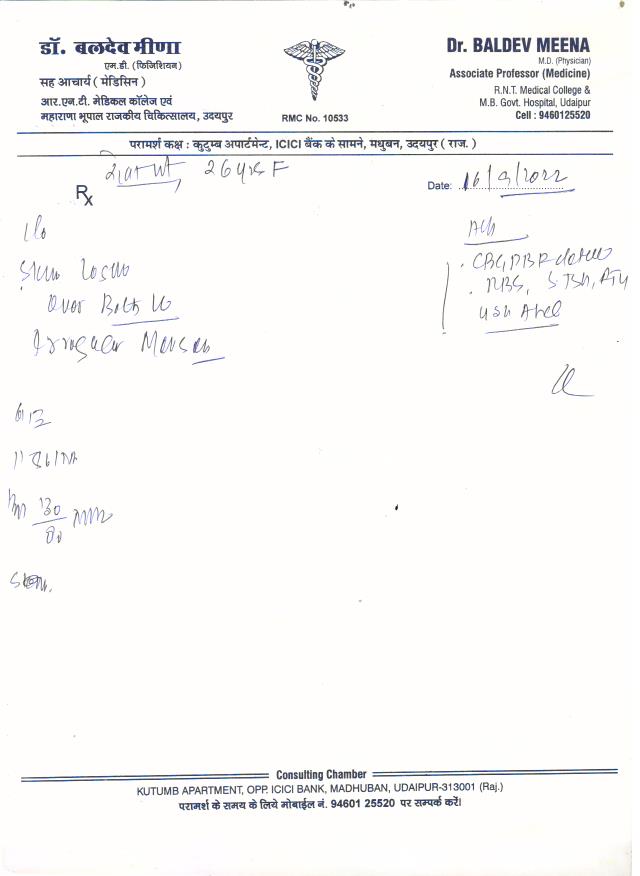 डॉ. बलदेव मीणा
एम.डी. (फिजिशियन)
सह आचार्य ( मेडिसिन )
आर.एन.टी. मेडिकल कॉलेज एवं
महाराणा भूपाल राजकीय चिकित्सालय, उदयपुर
RMC No. 10533
Dr. BALDEV MEENA
M.D. (Physician)
Associate Professor (Medicine)
R.N.T. Medical College &
M.B. Govt. Hospital, Udaipur
Cell : 9460125520
परामर्श कक्ष : कुटुम्ब अपार्टमेन्ट, ICICI बैंक के सामने, मधुबन, उदयपुर ( राज. )
26 yrs F
Rx
Date: 16/9/2022
C/o
Skin
Over Both
Irregular Menses
Adv
CBC,
RBS, S. TSH,
USG Abd
130
80
Consulting Chamber
KUTUMB APARTMENT, OPP. ICICI BANK, MADHUBAN, UDAIPUR-313001 (Raj.)
परामर्श के समय के लिये मोबाईल नं. 94601 25520 पर सम्पर्क करें।